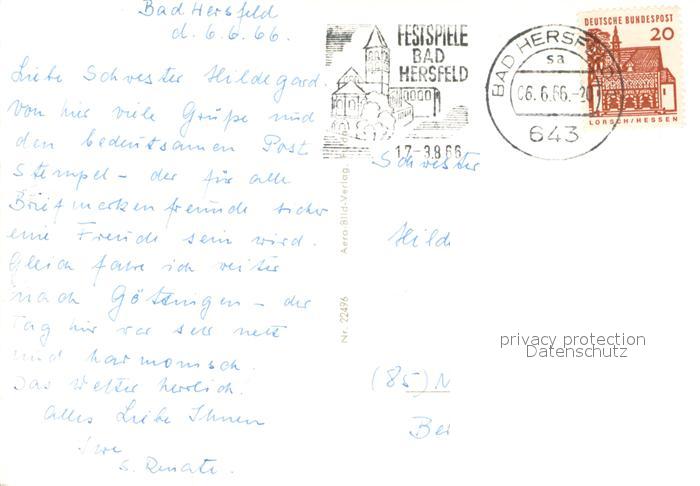 Bad Hersfeld
d. 6.6.66.
Liebe Schwester Hildegard.
von hier viele Grüße und
den bedeutsamen Post
stempel – der für alle
Briefmarkenfreunde sicher
eine Freude sein wird.
Gleich fahre ich weiter
nach Göttingen – der
Tag hier war sehr nett
und harmonisch.
Das Wetter herrlich!
Alles Liebe Ihnen
Ihre
S. Renate.
FESTSPIELE
BAD
HERSFELD
1.7.-3.8.66
BAD HERSFELD
sa
06.6.66.-2
643
DEUTSCHE BUNDESPOST
20
LORSCH/HESSEN
Schwester
Hild
(85) N
Bei
Aero-Bild-Verlag
Nr. 22496
privacy protection
Datenschutz